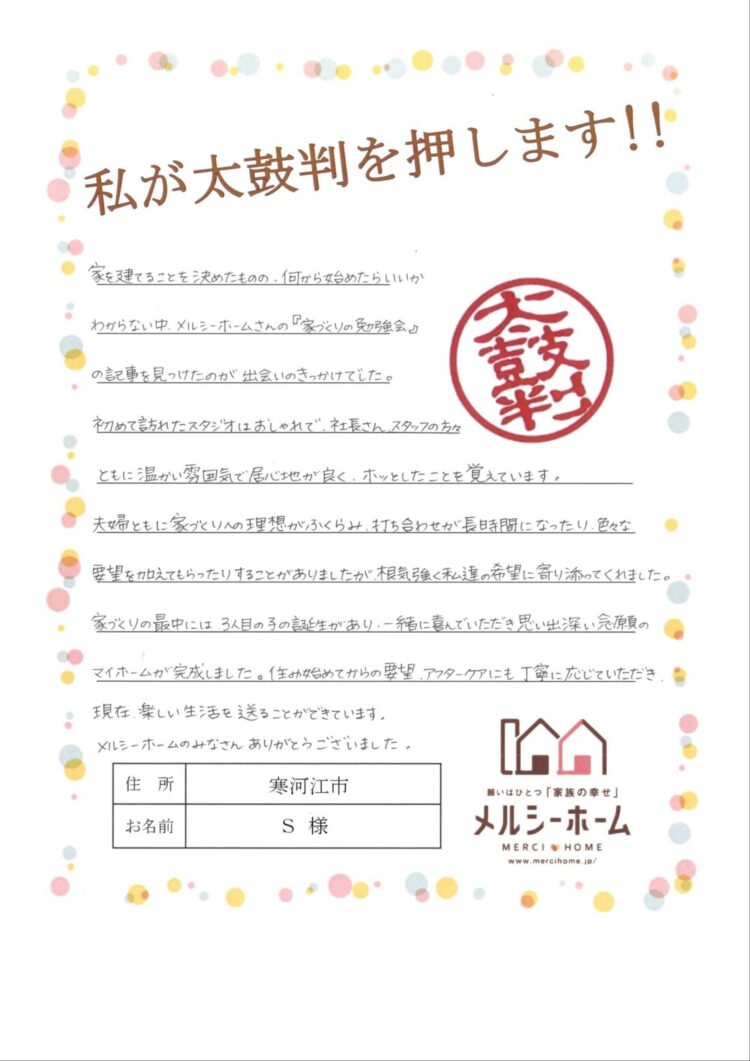 私が太鼓判を押します!!
家を建てることを決めたものの、何から始めたらいいか
わからない中、メルシーホームさんの『家づくりの勉強会』
の記事を見つけたのが出会いのきっかけでした。
太鼓判
初めて訪れたスタジオはおしゃれで、社長さん、スタッフの方々
ともに温かい雰囲気で居心地が良く、ホッとしたことを覚えています。
夫婦ともに家づくりへの理想がふくらみ、打ち合わせが長時間になったり、色々な
要望を加えてもらったりすることがありましたが、根気強く私達の希望に寄り添ってくれました。
家づくりの最中には、3人目の子の誕生があり、一緒に喜んでいただき思い出深い念願の
マイホームが完成しました。住み始めてからの要望、アフターケアにも丁寧に応じていただき、
現在、楽しい生活を送ることができています。
メルシーホームのみなさんありがとうございました。
住所 寒河江市
お名前 S 様
願いはひとつ「家族の幸せ」
メルシーホーム
MERCI HOME
www.mercihome.jp/